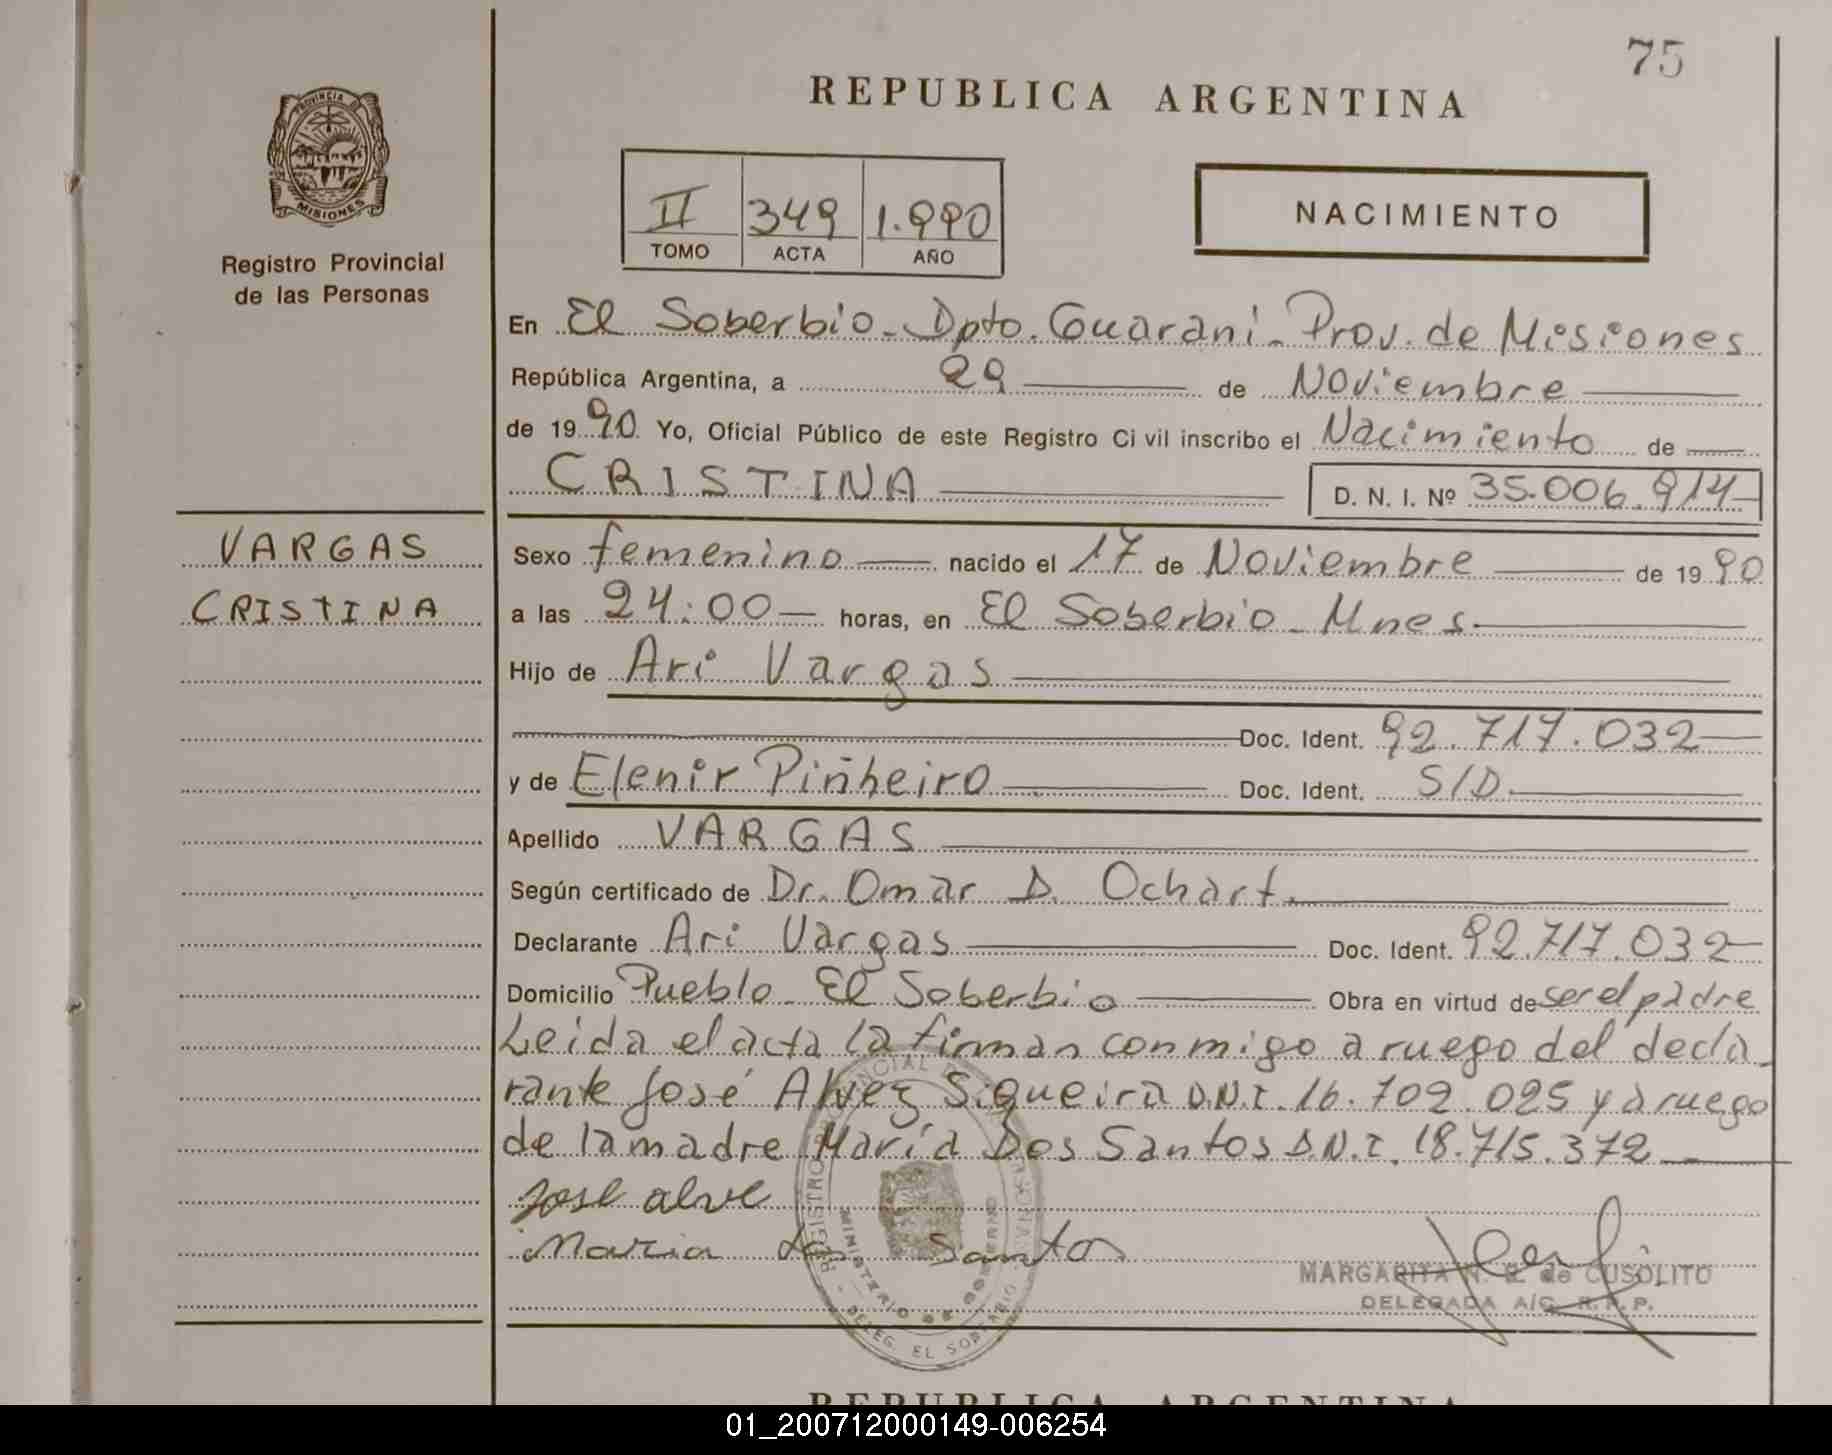 75
REPUBLICA ARGENTINA
PROVINCIA DE
MISIONES
Registro Provincial
de las Personas
II 349 1.990
TOMO ACTA AÑO
NACIMIENTO
En El Soberbio - Dpto. Guarani - Prov. de Misiones
República Argentina, a 29 de Noviembre
de 1990. Yo, Oficial Público de este Registro Civil inscribo el Nacimiento de
CRISTINA D. N. I. Nº 35.006.914
VARGAS
CRISTINA
Sexo femenino nacido el 17 de Noviembre de 1990
a las 24:00 horas, en El Soberbio - Mnes.
Hijo de Ari Vargas
Doc. Ident. 92.717.032
y de Elenir Piñheiro Doc. Ident. S/D.
Apellido VARGAS
Según certificado de Dr. Omar D. Ochart.
Declarante Ari Vargas Doc. Ident. 92.717.032
Domicilio Pueblo - El Soberbio Obra en virtud de ser el padre
Leida el acta la firman conmigo a ruego del decla
rante José Alvez Siqueira D.N.I. 16.702.025 y a ruego
de la madre María Dos Santos D.N.I. 18.715.372
Jose alve
Maria dos Santos
MARGARITA N. R. de CUSOLITO
DELEGADA A/C. R. P. P.
MINISTERIO DE GOBIERNO
DELEG. EL SOBERBIO
REPUBLICA ARGENTINA
01_200712000149-006254